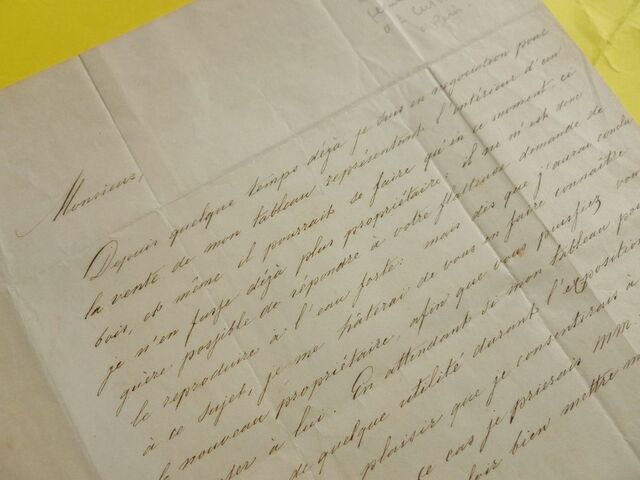 à Paris
Monsieur
Depuis quelque temps déjà je suis en négociation pour
la vente de mon tableau représentant l'intérieur d'un
bois, et même il pourrait se faire qu'en ce moment, ci
je n'en fusse déjà plus propriétaire; il ne m'est donc
guère possible de répondre à votre flatteuse demande de
le reproduire à l'eau forte: mais dès que j'aurai conclu
à ce sujet, je me hâterai de vous en faire connaître
le nouveau propriétaire, afin que vous puissiez vous
à lui. En attendant si mon tableau pou
de quelque utilité durant l'exposition
plaisir que je consentirais à
ce cas je prierais MM.
bien mettre m